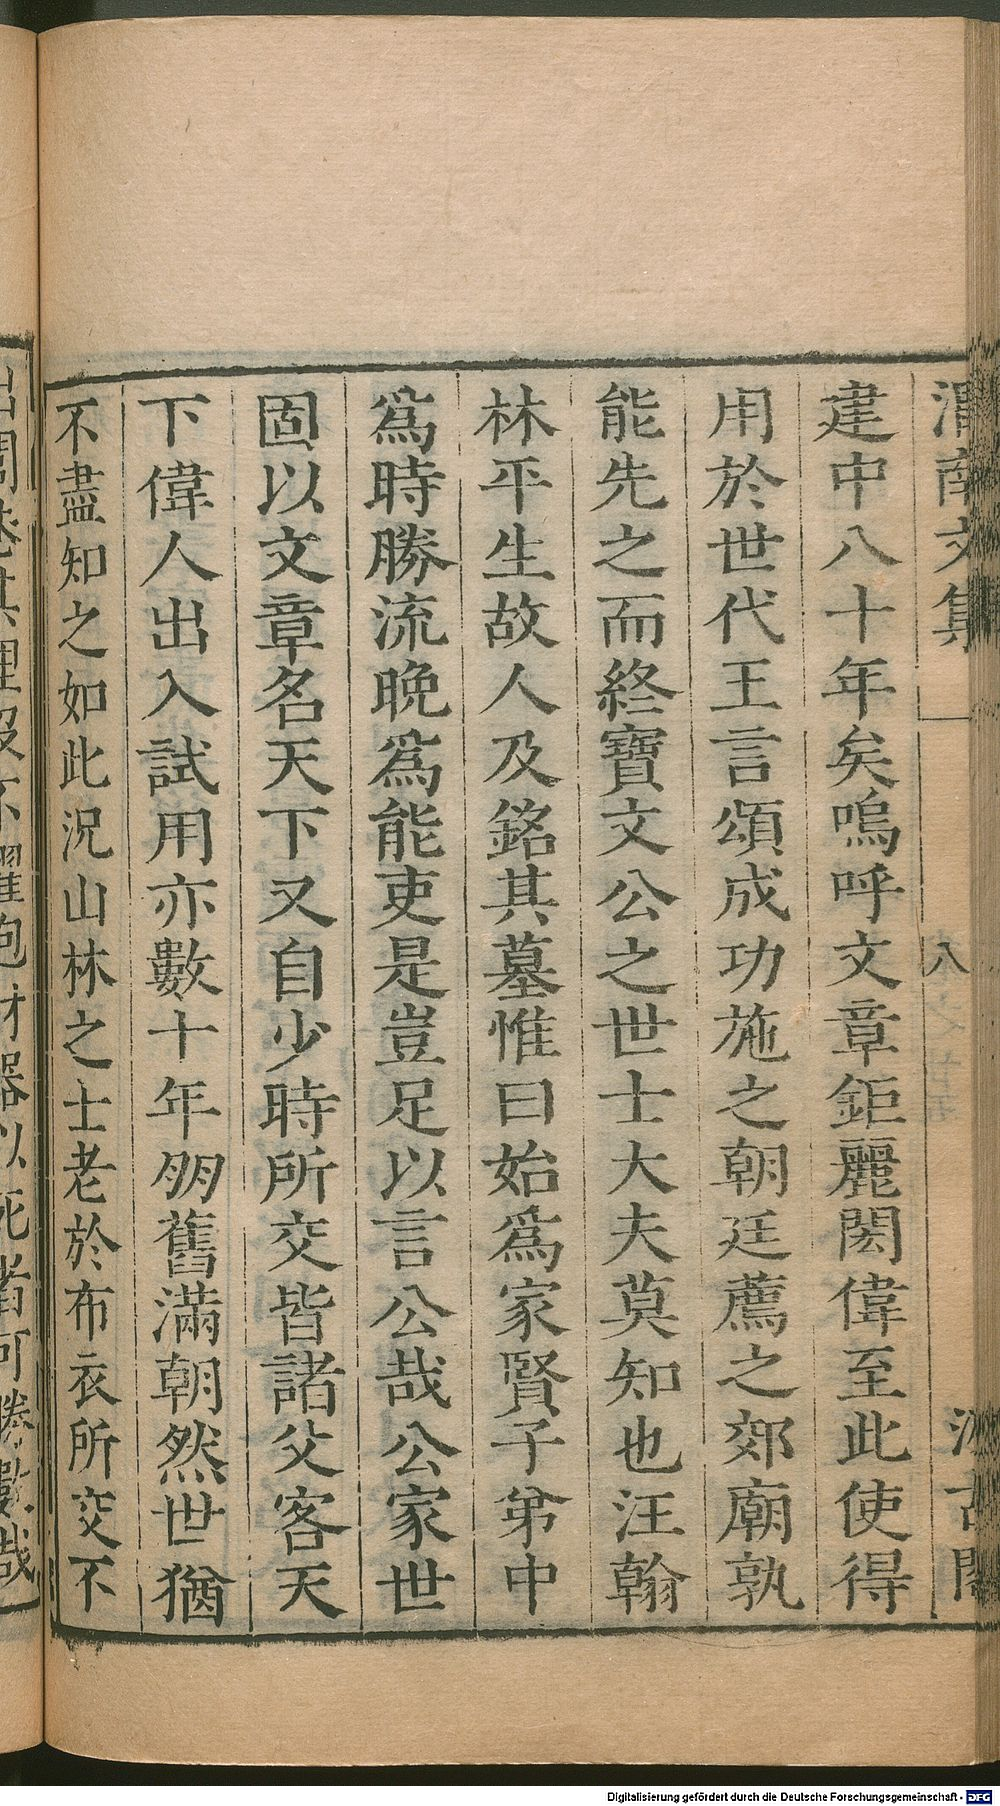 渭南文集 八 汲古閣
建中八十年矣嗚呼文章鉅麗閎偉至此使得
用於世代王言頌成功施之朝廷薦之郊廟孰
能先之而終寶文公之世士大夫莫知也汪翰
林平生故人及銘其墓惟曰始爲家賢子弟中
爲時勝流晚爲能吏是豈足以言公哉公家世
固以文章名天下又自少時所交皆諸父客天
下偉人出入試用亦數十年朋舊滿朝然世猶
不盡知之如此況山林之士老於布衣所交不
出閭巷其埋沒不耀抱材器以死者可勝數哉
Digitalisierung gefördert durch die Deutsche Forschungsgemeinschaft - DFG